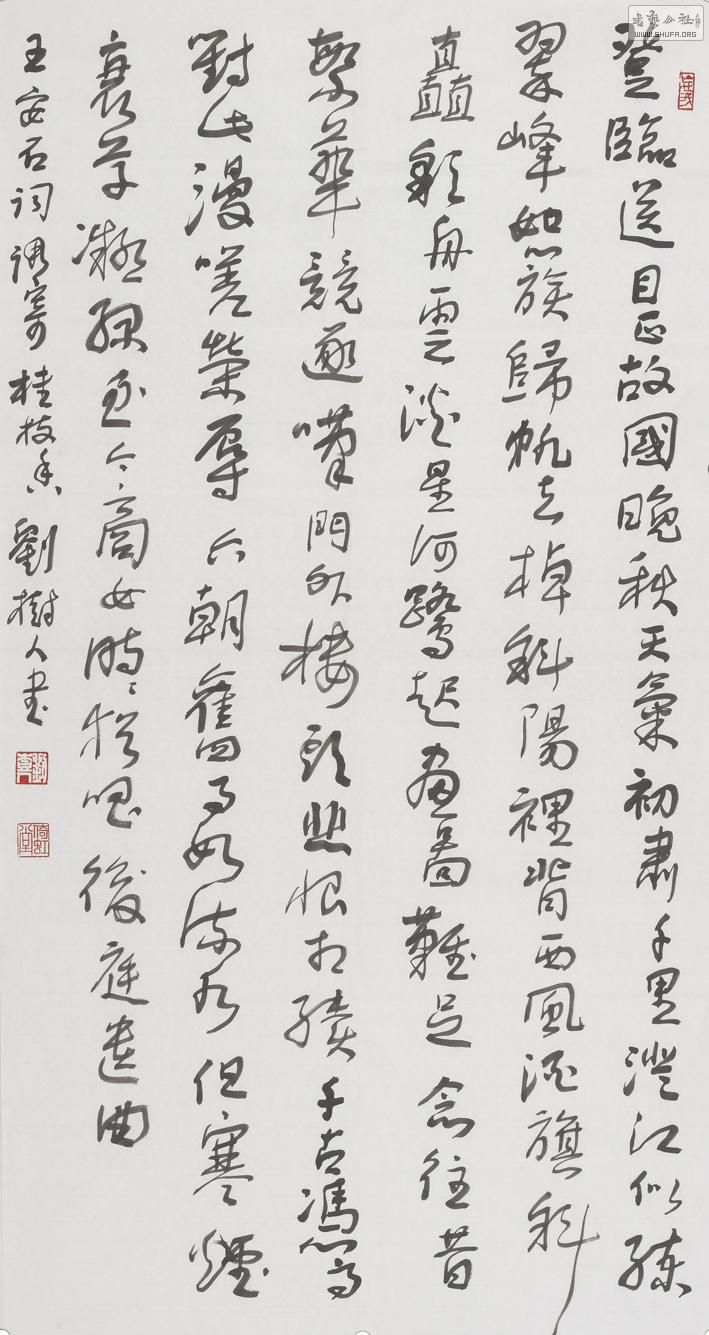 書藝公社
WWW.SHUFA.ORG
登臨送目正故國晚秋天氣初肅千里澄江似練
翠峰如族歸帆去棹斜陽裡背西風酒旗斜
矗彩舟雲淡星河鷺起畫圖難足念往昔
繁華競逐嘆門外樓頭悲恨相續千古憑高
對此漫嗟榮辱六朝舊事如流水但寒煙
衰草凝綠至今商女時々猶唱後庭遺曲
王安石詞調寄桂枝香劉樹人書
倚虹堂